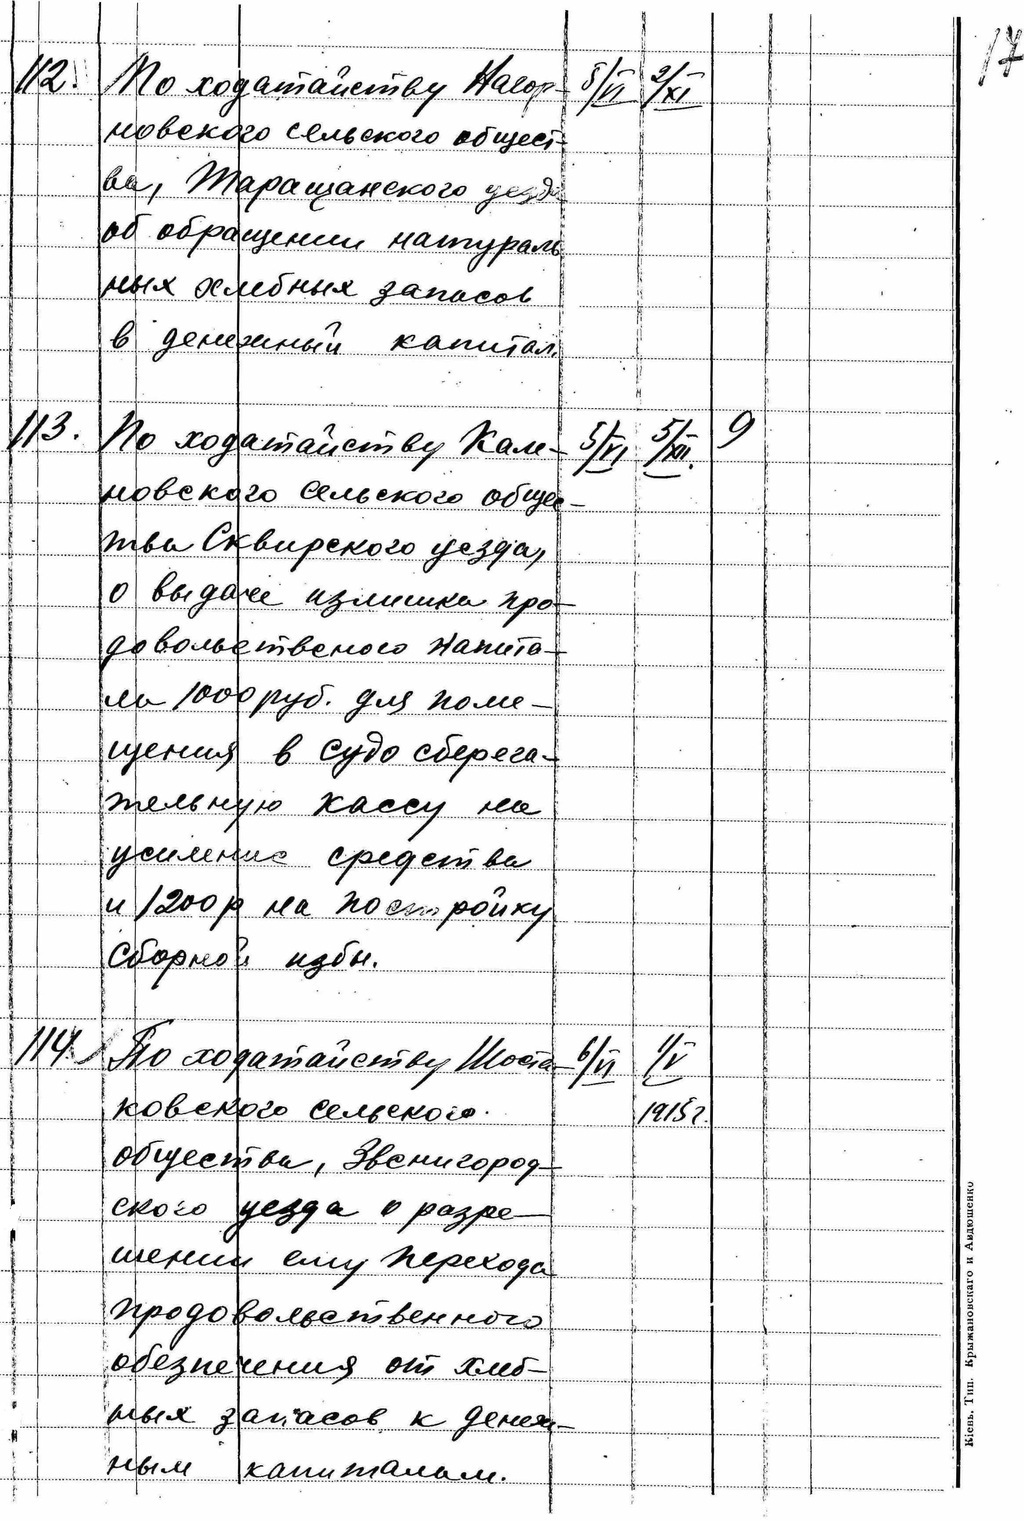 17
112. По ходатайству Нагор- 5/VI 2/XI
новского сельского общест-
ва, Таращанского уезда
об обращении натураль
ных хлебных запасов
в денежный капитал.
113. По ходатайству Кале- 5/VI 5/XII. 9
новского сельского общес-
тва Сквирского уезда,
о выдаче излишка про-
довольственого капита-
ла 1000 руб. для поме-
щения в судо сберега-
тельную кассу на
усиление средства
и 1200 р на постройку
сборной избы.
114. По ходатайству Шоста- 6/VI 1/V
ковского сельского 1915 г.
общества, Звенигород-
ского уезда о разре-
шении ему перехода
продовольственного
обезпечения от хлеб-
ных запасов к денеж-
ным капиталам.
Кіевь, Тип. Крыжановскаго и Авдюшенко